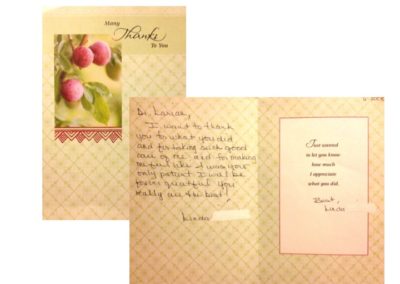 Many
Thanks
To You
Dr.
I want to thank
you to what you did
and for taking such good
care of me and for making
me feel like I was your
only patient. I will be
forever greatful you
really are the best!
Linda
Just wanted
to let you know
how much
I appreciate
what you did.
Best,
Linda